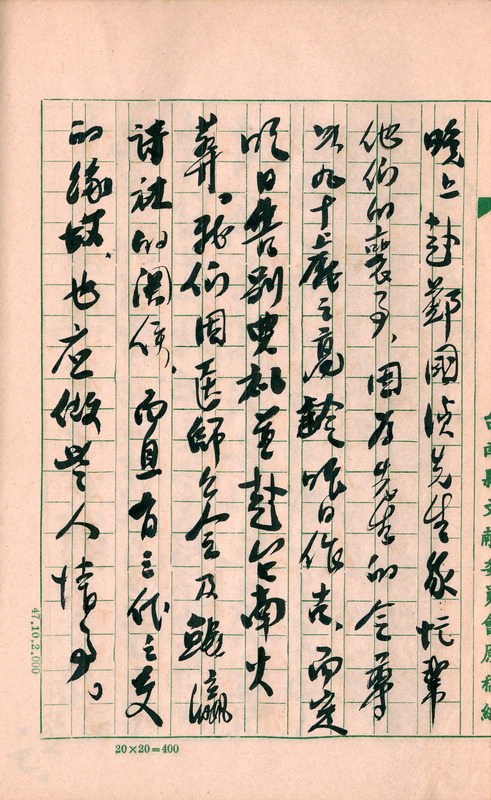 晚上赴鄭國湞先生家忙幫
他们的喪事、因为先生的令尊
以九十上歲之高齡昨日作古、而定
明日告别典礼並赴台南火
葬。我们因医師公会及鯤瀛
詩社的関係、而且有三代之交
的缘故、也应做些人情事。
台南縣文献委員會原稿紙
47.10.2.000
20×20=400